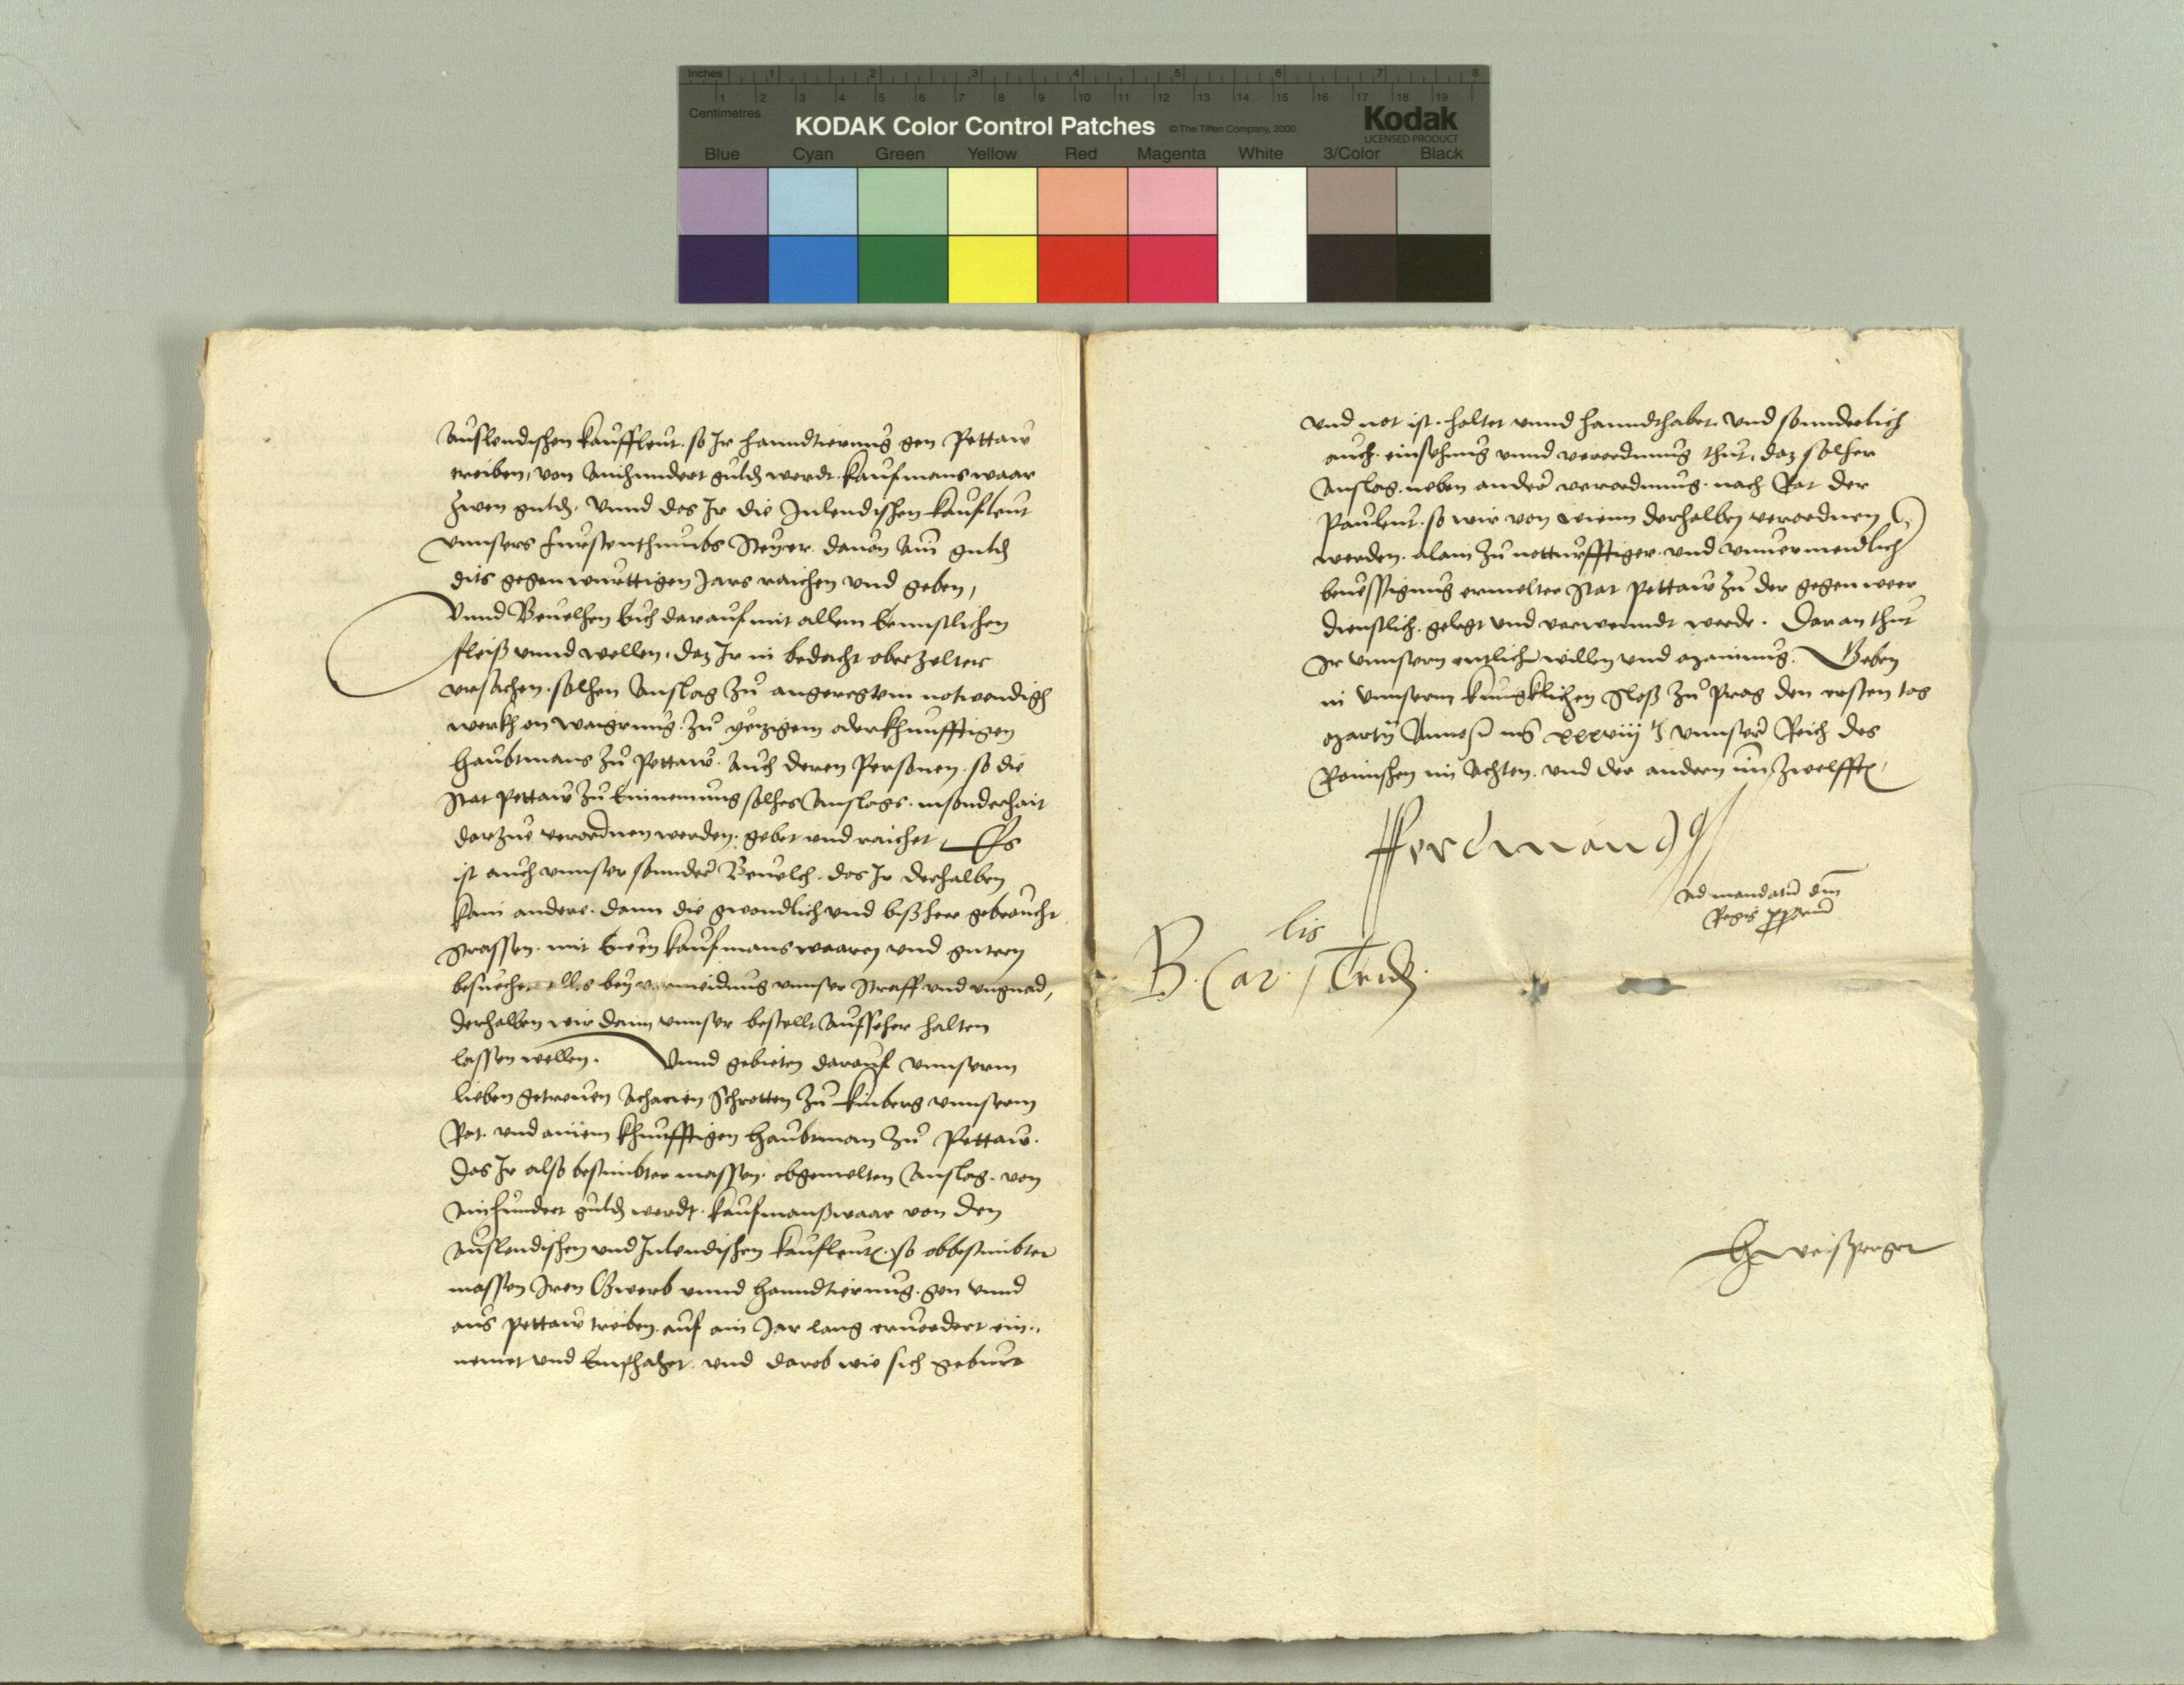 Inches 1 2 3 4 5 6 7 8
Centimetres 1 2 3 4 5 6 7 8 9 10 11 12 13 14 15 16 17 18 19
KODAK Color Control Patches © The Tiffen Company, 2000 Kodak
LICENSED PRODUCT
Blue Cyan Green Yellow Red Magenta White 3/Color Black
Auslendischen kauffleut. so Ir hanndtierung gen Pettaw
treiben, von Ainhundert guld werdt kaufmans waar
Zwen guld, Vnnd das Ir die Inlendischen kaufleut
vnnsers Furstenthumbs Steyer. dauon Ain guld
dits gegenwurttigen Jars raichen vnd geben,
Vnnd Beuelhen Euch darauf mit allem Ernnstlichen
fleiß vnnd wellen, daz Ir in bedacht oberzelter
vrsachen. solhen Anslag zu angeregtem notwendigen
werkh on waigrung. zu yetzigem oder khunfftigen
haubtmans zu Pettaw. Auch deren Personen. so die
Stat Pettaw zu Einnemung solhes Anslags. insonderhait
darzue verordnen werden. gebet vnd raichet Es
ist auch vnnser sonnder Beuelch. das Ir derhalben
kain andere. dann die gwondlich vnd bißheer gebraucht
Strassen. mit Eurn kaufmans waaren vnd guetern
besuechet alles bey vermeidung vnnser Straff vnd vngnad,
derhalben wir dann vnnser bestellt Aufseher halten
lassen wellen. Vnnd gebieten darauf vnnserm
lieben getrewen Achacien Schrotten zu Kinberg vnnserm
Rat. vnd ainem khunfftigen haubtman zu Pettaw.
das Ir also bestimbter massen. obgemelten Anslag. von
Ainhundert guld werdt. kaufmanßwaar von den
Auslendischen vnd Inlendischen kaufleuten. so obbestimbter
massen Iren Gwerb vnnd hanndtierung. gen vnnd
aus Pettaw treiben. auf ain Jar lang eruordert ein-
nemet vnd Emphahet. vnd darob wie sich geburt
vnd not ist. haltet vnnd hanndthabet. vnd sonnderlich
auch einsehung vnnd verordnung thut, daz solher
Anslag. neben ander verordnung. nach Rat der
Pauleut. so wir von Wienn derhalben verordnen
werden. alain zu notturfftiger. vnd vnuermeidlich
beuesstigung ermelter Stat Pettaw zu der gegenweer
dienstlich. gelegt vnd verwenndt werde. Daran thut
Ir vnnsern entlichen willen vnd maynung. Geben
in vnnserm kunigklichen Sloß zu Prag den ersten tag
Marty Anno im xxxviij vnnserer Reich des
Romischen im Achten. vnd der andern im Zwelfften
Ferdinand
Ad mandatum dni
Regis pprium
B. Car. lis Trid.